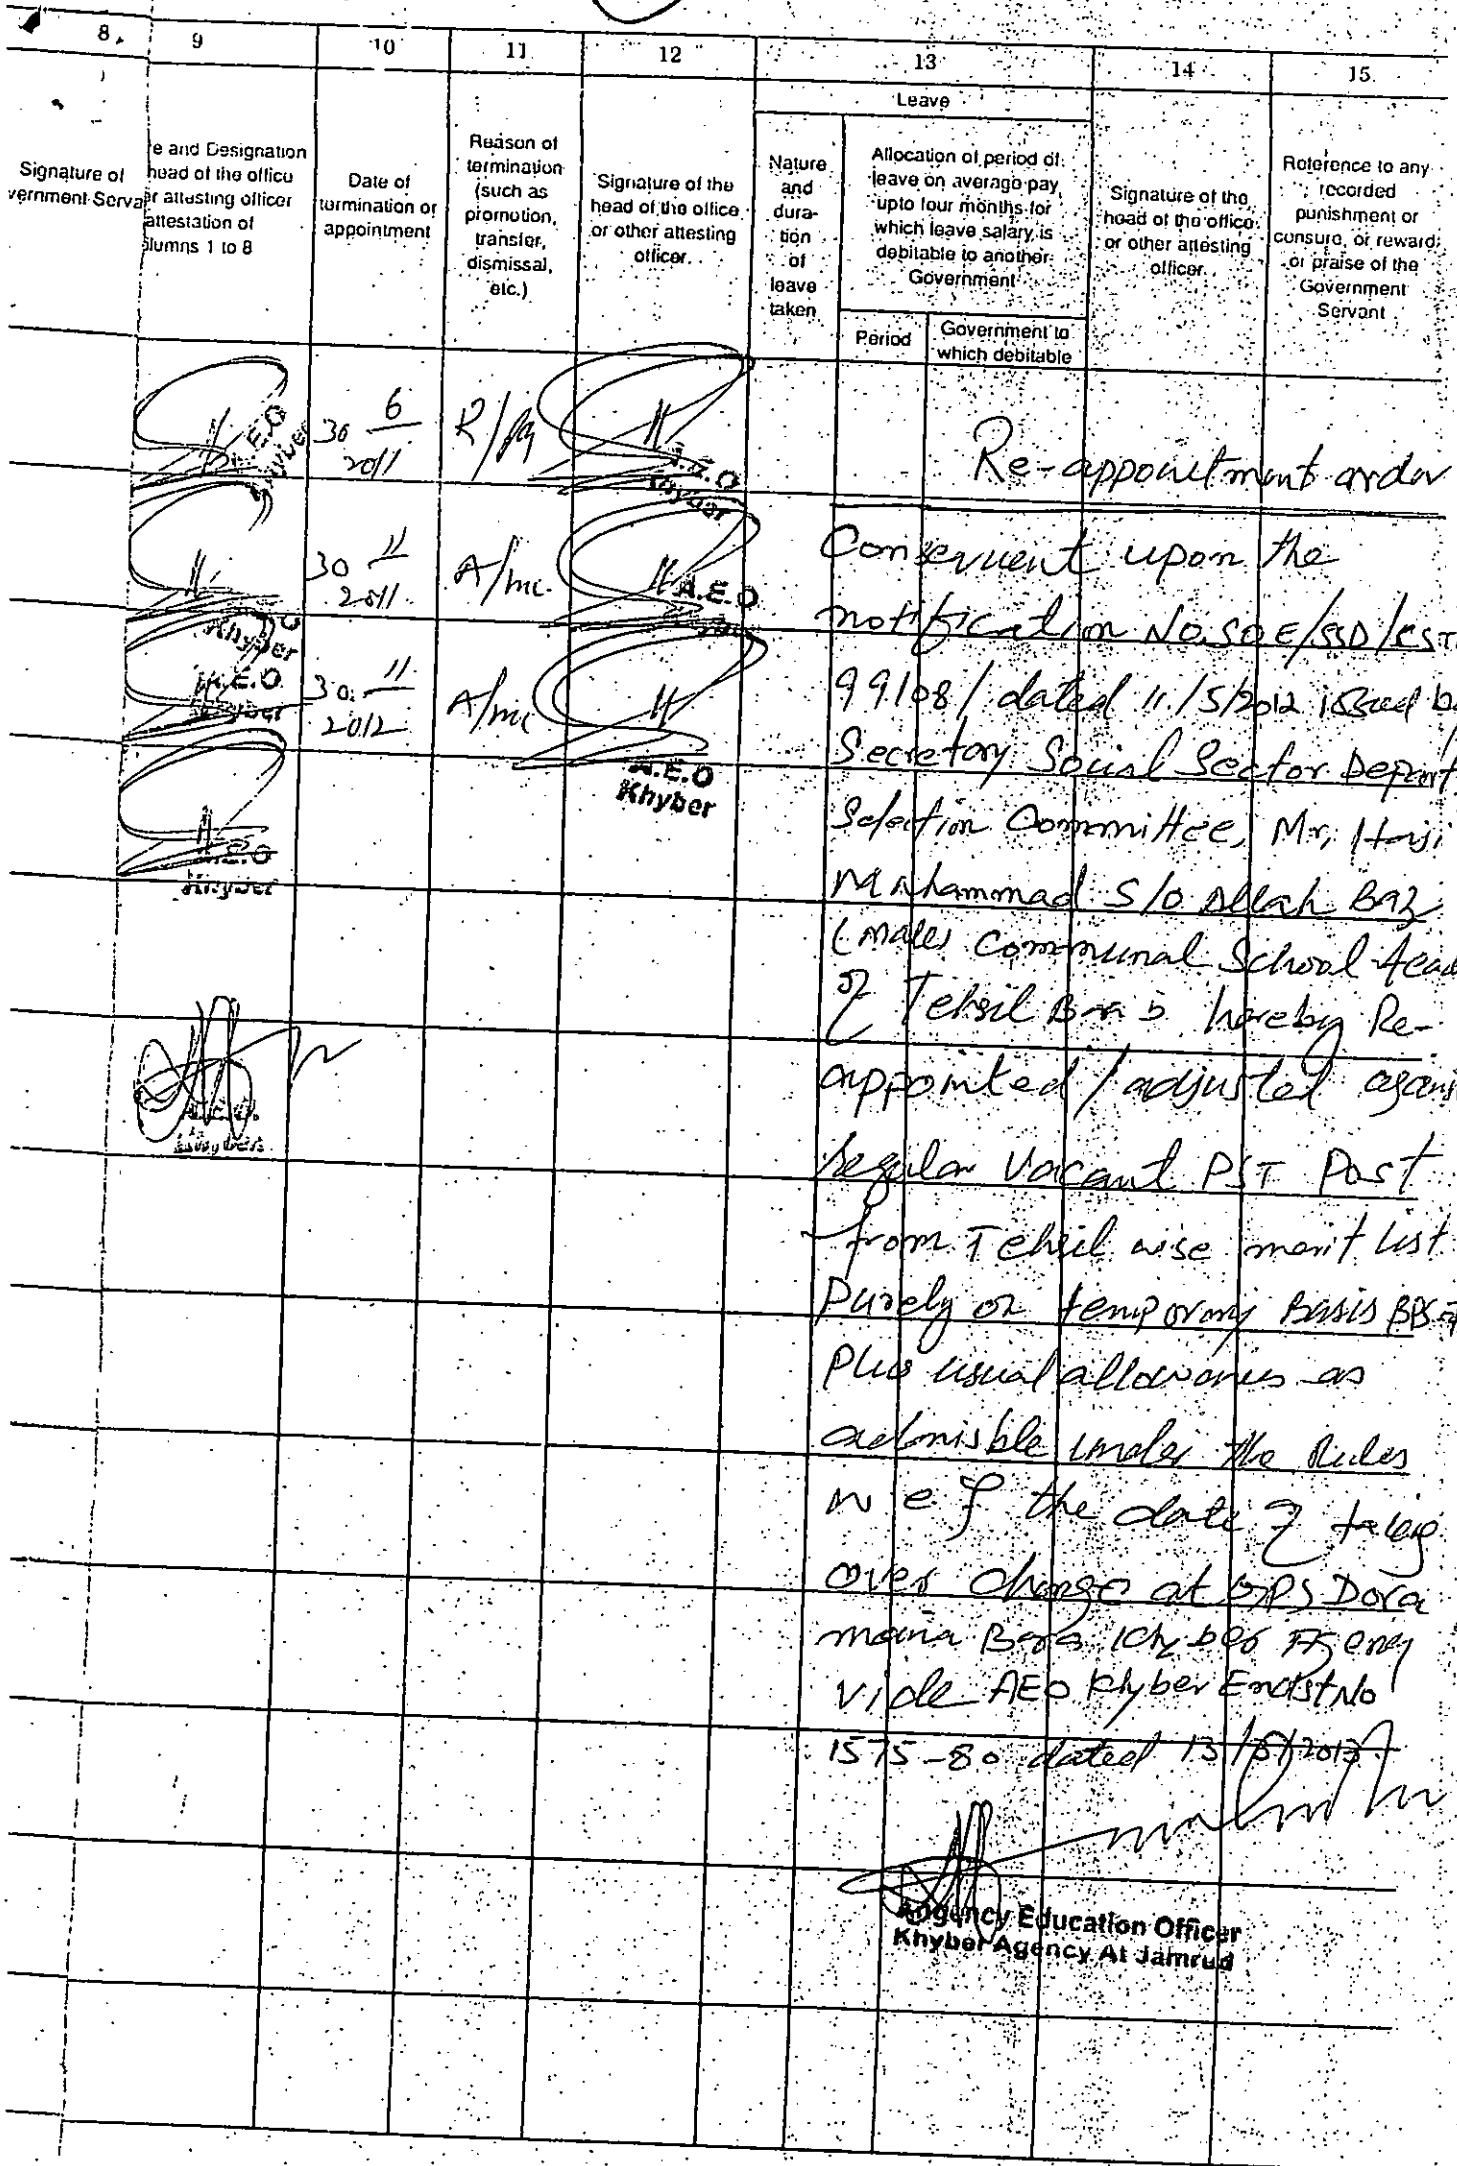 8. 9 10 11 12 13 14 15
Leave
Signature of
vernment Serva
e and Designation
head of the office
er attesting officer
attestation of
olumns 1 to 8
Date of
termination or
appointment
Reason of
termination
(such as
promotion,
transfer,
dismissal,
etc.)
Signature of the
head of the office
or other attesting
officer.
Nature
and
dura-
tion
of
leave
taken
Allocation of period of
leave on average pay
upto four months for
which leave salary is
debitable to another
Government
Period
Government to
which debitable
Signature of the
head of the office
or other attesting
officer.
Reference to any
recorded
punishment or
censure, or reward
or praise of the
Government
Servant
A.E.O
Khyber
30 6
2011
R/
A.E.O
Khyber
Re-appointment order
30 11
2011
A/
A.E.O
Khyber
Consequent upon the
notification No. SOE/SSD/
A.E.O
Khyber
30. 11
2012
A/
99108/ dated 11/5/2012 issued b
A.E.O
Khyber
Secretary Social Sector Depart
A.E.O
Khyber
Selection Committee, Mr, Haji
Muhammad S/o Allah Baz
(Males Communal School tea
of Tehsil hereby Re-
appointed / adjusted agains
A.E.O.
Khyber
Regular Vacant PST Post
from Tehsil wise merit list
Purely on temporary Basis
Plus usual allowances as
admisble under the Rules
w e f the date of taking
over charge at GPS Dora
Bara Khyber Agency
vide AEO Khyber Endst No
1575-80 dated
Angency Education Officer
Khyber Agency At Jamrud